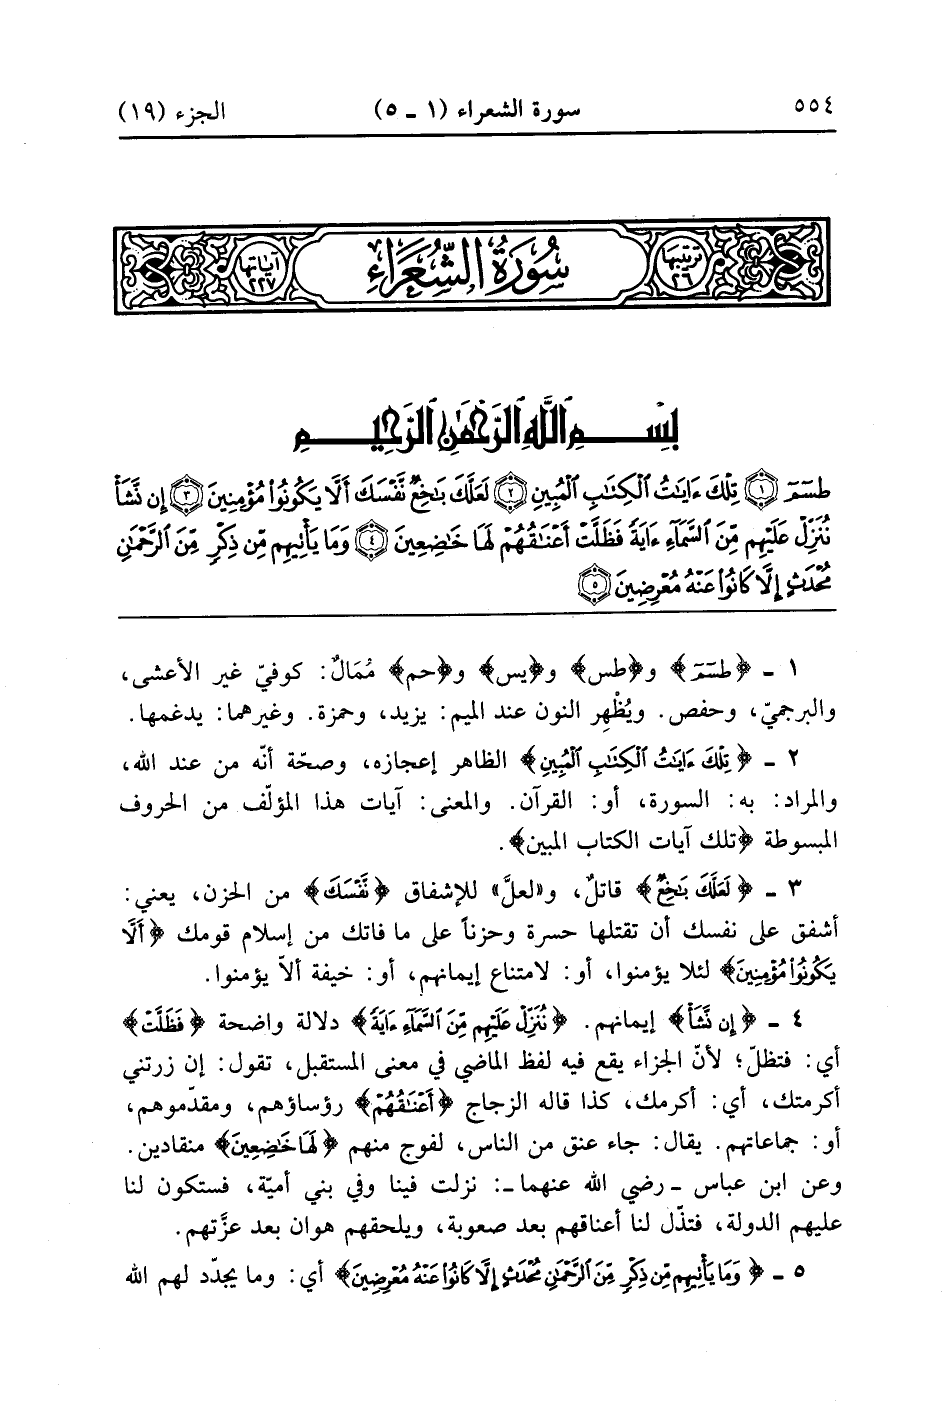 ٥٥٤ سورة الشعراء (١ ـ ٥) الجزء (١٩)
ترتيبها ٢٦ سُورَةُ الشُّعَرَاءِ آياتها ٢٢٧
بِسْمِ ٱللَّهِ ٱلرَّحْمَٰنِ ٱلرَّحِيمِ
طسٓمٓ ١ تِلْكَ ءَايَٰتُ ٱلْكِتَٰبِ ٱلْمُبِينِ ٢ لَعَلَّكَ بَٰخِعٌ نَّفْسَكَ أَلَّا يَكُونُوا۟ مُؤْمِنِينَ ٣ إِن نَّشَأْ
نُنَزِّلْ عَلَيْهِم مِّنَ ٱلسَّمَآءِ ءَايَةً فَظَلَّتْ أَعْنَٰقُهُمْ لَهَا خَٰضِعِينَ ٤ وَمَا يَأْتِيهِم مِّن ذِكْرٍ مِّنَ ٱلرَّحْمَٰنِ
مُحْدَثٍ إِلَّا كَانُوا۟ عَنْهُ مُعْرِضِينَ ٥
١ ـ ﴿طسٓمٓ﴾ و﴿طس﴾ و﴿يس﴾ و﴿حم﴾ مُمَالٌ: كوفيّ غير الأعشى،
والبرجميّ، وحفص. ويُظْهِر النون عند الميم: يزيد، وحمزة. وغيرهما: يدغمها.
٢ ـ ﴿تِلْكَ ءَايَٰتُ ٱلْكِتَٰبِ ٱلْمُبِينِ﴾ الظاهر إعجازه، وصحّة أنّه من عند الله،
والمراد: به: السورة، أو: القرآن. والمعنى: آيات هذا المؤلّف من الحروف
المبسوطة ﴿تلك آيات الكتاب المبين﴾.
٣ ـ ﴿لَعَلَّكَ بَٰخِعٌ﴾ قاتلٌ، و«لعلَّ» للإشفاق ﴿نَّفْسَكَ﴾ من الحزن، يعني:
أشفق على نفسك أن تقتلها حسرة وحزناً على ما فاتك من إسلام قومك ﴿أَلَّا
يَكُونُوا۟ مُؤْمِنِينَ﴾ لئلا يؤمنوا، أو: لامتناع إيمانهم، أو: خيفة ألاّ يؤمنوا.
٤ ـ ﴿إِن نَّشَأْ﴾ إيمانهم. ﴿نُنَزِّلْ عَلَيْهِم مِّنَ ٱلسَّمَآءِ ءَايَةً﴾ دلالة واضحة ﴿فَظَلَّتْ﴾
أي: فتظلّ؛ لأنّ الجزاء يقع فيه لفظ الماضي في معنى المستقبل، تقول: إن زرتني
أكرمتك، أي: أكرمك، كذا قاله الزجاج ﴿أَعْنَٰقُهُمْ﴾ رؤساؤهم، ومقدّموهم،
أو: جماعاتهم. يقال: جاء عنق من الناس، لفوج منهم ﴿لَهَا خَٰضِعِينَ﴾ منقادين.
وعن ابن عباس ـ رضي الله عنهما ـ: نزلت فينا وفي بني أميّة، فستكون لنا
عليهم الدولة، فتذّل لنا أعناقهم بعد صعوبة، ويلحقهم هوان بعد عزَّتهم.
٥ ـ ﴿وَمَا يَأْتِيهِم مِّن ذِكْرٍ مِّنَ ٱلرَّحْمَٰنِ مُحْدَثٍ إِلَّا كَانُوا۟ عَنْهُ مُعْرِضِينَ﴾ أي: وما يجدّد لهم الله